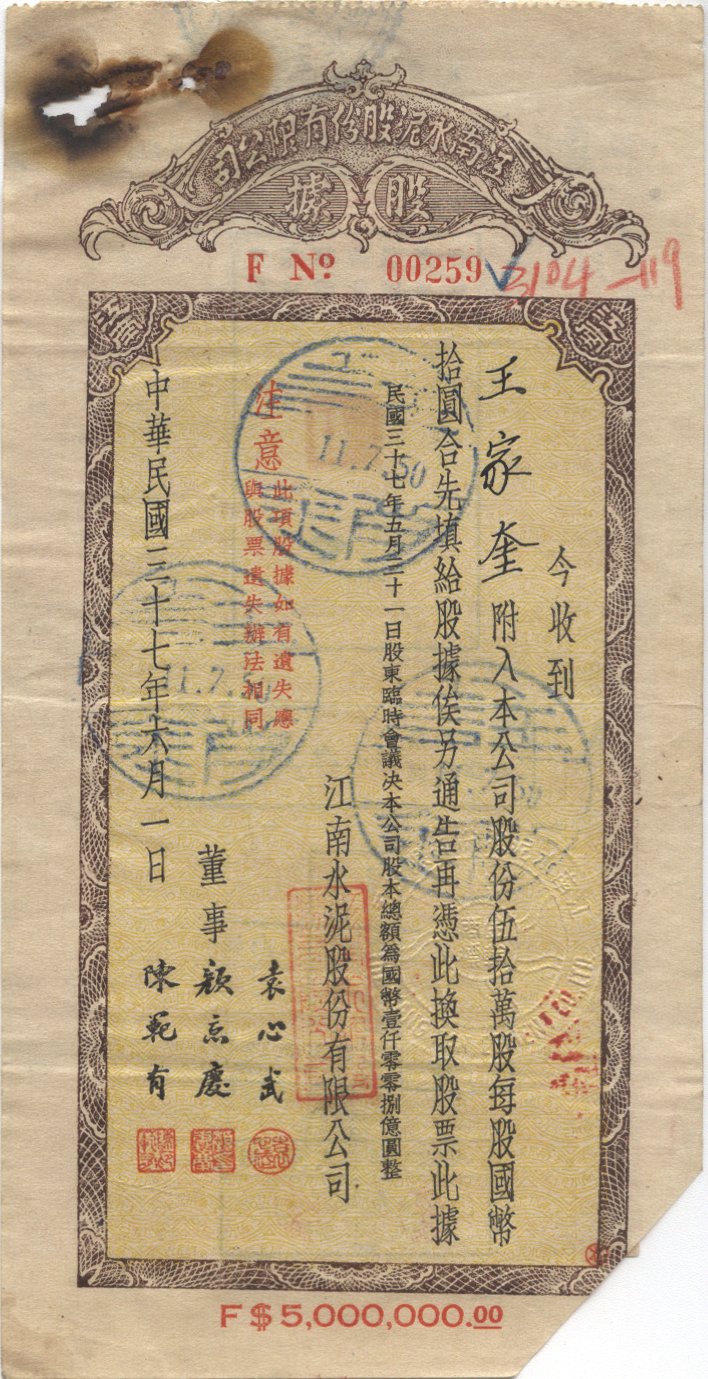 江南水泥股份有限公司
股據
F Nº 00259
3104-119
江南
江南
今收到
王家奎附入本公司股份伍拾萬股每股國幣
拾圓合先填給股據俟另通告再憑此換取股票此據
民國三十七年五月三十一日股東臨時會議决本公司股本總額爲國幣壹仟零零捌億圓整
江南水泥股份有限公司
注意
此項股據如有遺失應
與股票遺失辦法相同
董事
袁心武
顏惠慶
陳範有
中華民國三十七年六月一日
11.7.50
11.7.50
F$5,000,000.00